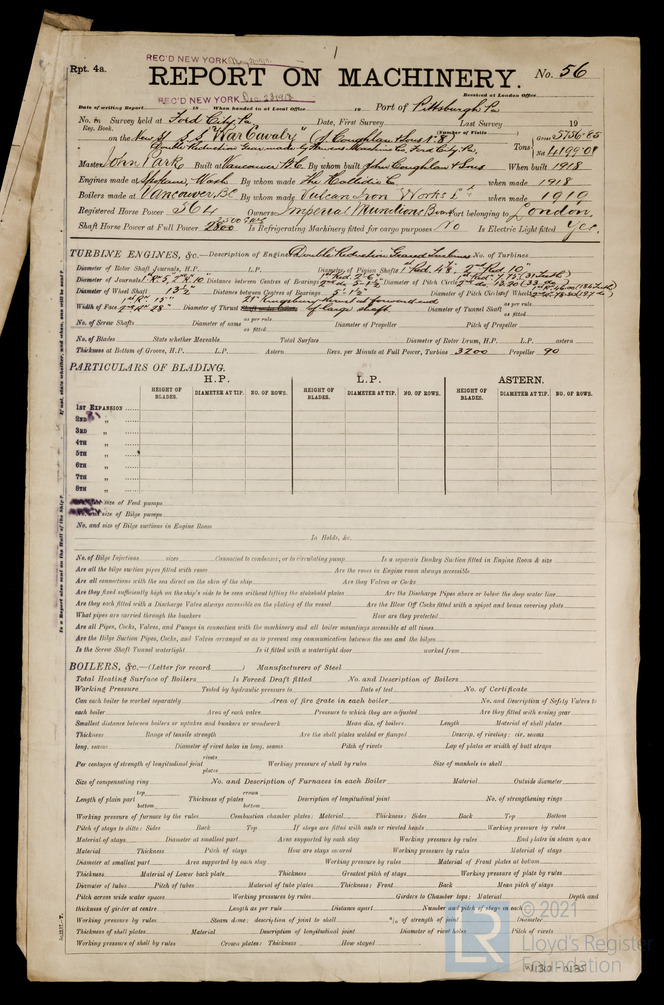 REC'D NEW YORK
Rpt. 4a.
REPORT ON MACHINERY.
No. 56
REC'D NEW YORK Dec 23 1918
Received at London Office
Date of writing Report 19 When handed in at Local Office 19 Port of Pittsburgh Pa
No. in Survey held at Ford City, Pa Date, First Survey Last Survey 19
Reg. Book. (Number of Visits
on the New S/ S.S. "War Cavalry" (J. Coughlan & Sons No. 8) Tons Gross 5756.85
Double Reduction Gear made by Ford City, Pa. Net 4199.08
Master John Park Built at Vancouver B.C. By whom built John Coughlan & Sons When built 1918
Engines made at Spokane, Wash By whom made The Hallidie Co. when made 1918
Boilers made at Vancouver, BC By whom made Vulcan Iron Works Ld when made 1919
Registered Horse Power 564 Owners Imperial Munitions Board Port belonging to London
Shaft Horse Power at Full Power 2500 Is Refrigerating Machinery fitted for cargo purposes No Is Electric Light fitted Yes.
TURBINE ENGINES, &c.—Description of Engines Double Reduction Geared Turbines No. of Turbines
Diameter of Rotor Shaft Journals, H.P. L.P. Diameter of Pinion Shafts 1st Red. 4⅞" 2nd Red. 10"
Diameter of Journals 1st R. 5, 2nd R. 10" Distance between Centres of Bearings Diameter of Pitch Circle
Diameter of Wheel Shaft 13½" Distance between Centres of Bearings 5'-1½" Diameter of Pitch Circle of Wheel
Width of Face 1st R. 15" 2nd R. 28" Diameter of Thrust 21" Kingsbury thrust forward end of large shaft. Diameter of Tunnel Shaft as per rule as fitted
No. of Screw Shafts Diameter of same as per rule as fitted Diameter of Propeller Pitch of Propeller
No. of Blades State whether Moveable Total Surface Diameter of Rotor Drum, H.P. L.P. astern
Thickness at Bottom of Groove, H.P. L.P. Astern Revs. per Minute at Full Power, Turbine 3200 Propeller 90
PARTICULARS OF BLADING.
H.P. L.P. ASTERN.
HEIGHT OF BLADES. DIAMETER AT TIP. NO. OF ROWS. HEIGHT OF BLADES. DIAMETER AT TIP. NO. OF ROWS. HEIGHT OF BLADES. DIAMETER AT TIP. NO. OF ROWS.
1ST EXPANSION
2ND "
3RD "
4TH "
5TH "
6TH "
7TH "
8TH "
size of Feed pumps
size of Bilge pumps
No. and size of Bilge suctions in Engine Room
In Holds, &c.
No. of Bilge Injections sizes Connected to condenser, or to circulating pump Is a separate Donkey Suction fitted in Engine Room & size
Are all the bilge suction pipes fitted with roses Are the roses in Engine room always accessible
Are all connections with the sea direct on the skin of the ship Are they Valves or Cocks
Are they fixed sufficiently high on the ship's side to be seen without lifting the stokehold plates Are the Discharge Pipes above or below the deep water line
Are they each fitted with a Discharge Valve always accessible on the plating of the vessel Are the Blow Off Cocks fitted with a spigot and brass covering plate
What pipes are carried through the bunkers How are they protected
Are all Pipes, Cocks, Valves, and Pumps in connection with the machinery and all boiler mountings accessible at all times
Are the Bilge Suction Pipes, Cocks, and Valves arranged so as to prevent any communication between the sea and the bilges
Is the Screw Shaft Tunnel watertight Is it fitted with a watertight door worked from
BOILERS, &c.—(Letter for record ) Manufacturers of Steel
Total Heating Surface of Boilers Is Forced Draft fitted No. and Description of Boilers
Working Pressure Tested by hydraulic pressure to Date of test No. of Certificate
Can each boiler be worked separately Area of fire grate in each boiler No. and Description of Safety Valves to
each boiler Area of each valve Pressure to which they are adjusted Are they fitted with easing gear
Smallest distance between boilers or uptakes and bunkers or woodwork Mean dia. of boilers Length Material of shell plates
Thickness Range of tensile strength Are the shell plates welded or flanged Descrip. of riveting: cir. seams
long. seams Diameter of rivet holes in long. seams Pitch of rivets Lap of plates or width of butt straps
Per centages of strength of longitudinal joint rivets plates Working pressure of shell by rules Size of manhole in shell
Size of compensating ring No. and Description of Furnaces in each Boiler Material Outside diameter
Length of plain part top bottom Thickness of plates crown bottom Description of longitudinal joint No. of strengthening rings
Working pressure of furnace by the rules Combustion chamber plates: Material Thickness: Sides Back Top Bottom
Pitch of stays to ditto: Sides Back Top If stays are fitted with nuts or riveted heads Working pressure by rules
Material of stays Diameter at smallest part Area supported by each stay Working pressure by rules End plates in steam space
Material Thickness Pitch of stays How are stays secured Working pressure by rules Material of stays
Diameter at smallest part Area supported by each stay Working pressure by rules Material of Front plates at bottom
Thickness Material of Lower back plate Thickness Greatest pitch of stays Working pressure of plate by rules
Diameter of tubes Pitch of tubes Material of tube plates Thickness: Front Back Mean pitch of stays
Pitch across wide water spaces Working pressures by rules Girders to Chamber tops: Material Depth and
thickness of girder at centre Length as per rule Distance apart Number and pitch of stays in each
Working pressure by rules Steam dome: description of joint to shell % of strength of joint Diameter
Thickness of shell plates Material Description of longitudinal joint Diameter of rivet holes Pitch of rivets
Working pressure of shell by rules Crown plates: Thickness How stayed
© 2021
Lloyd's Register
Foundation
W1310-0135